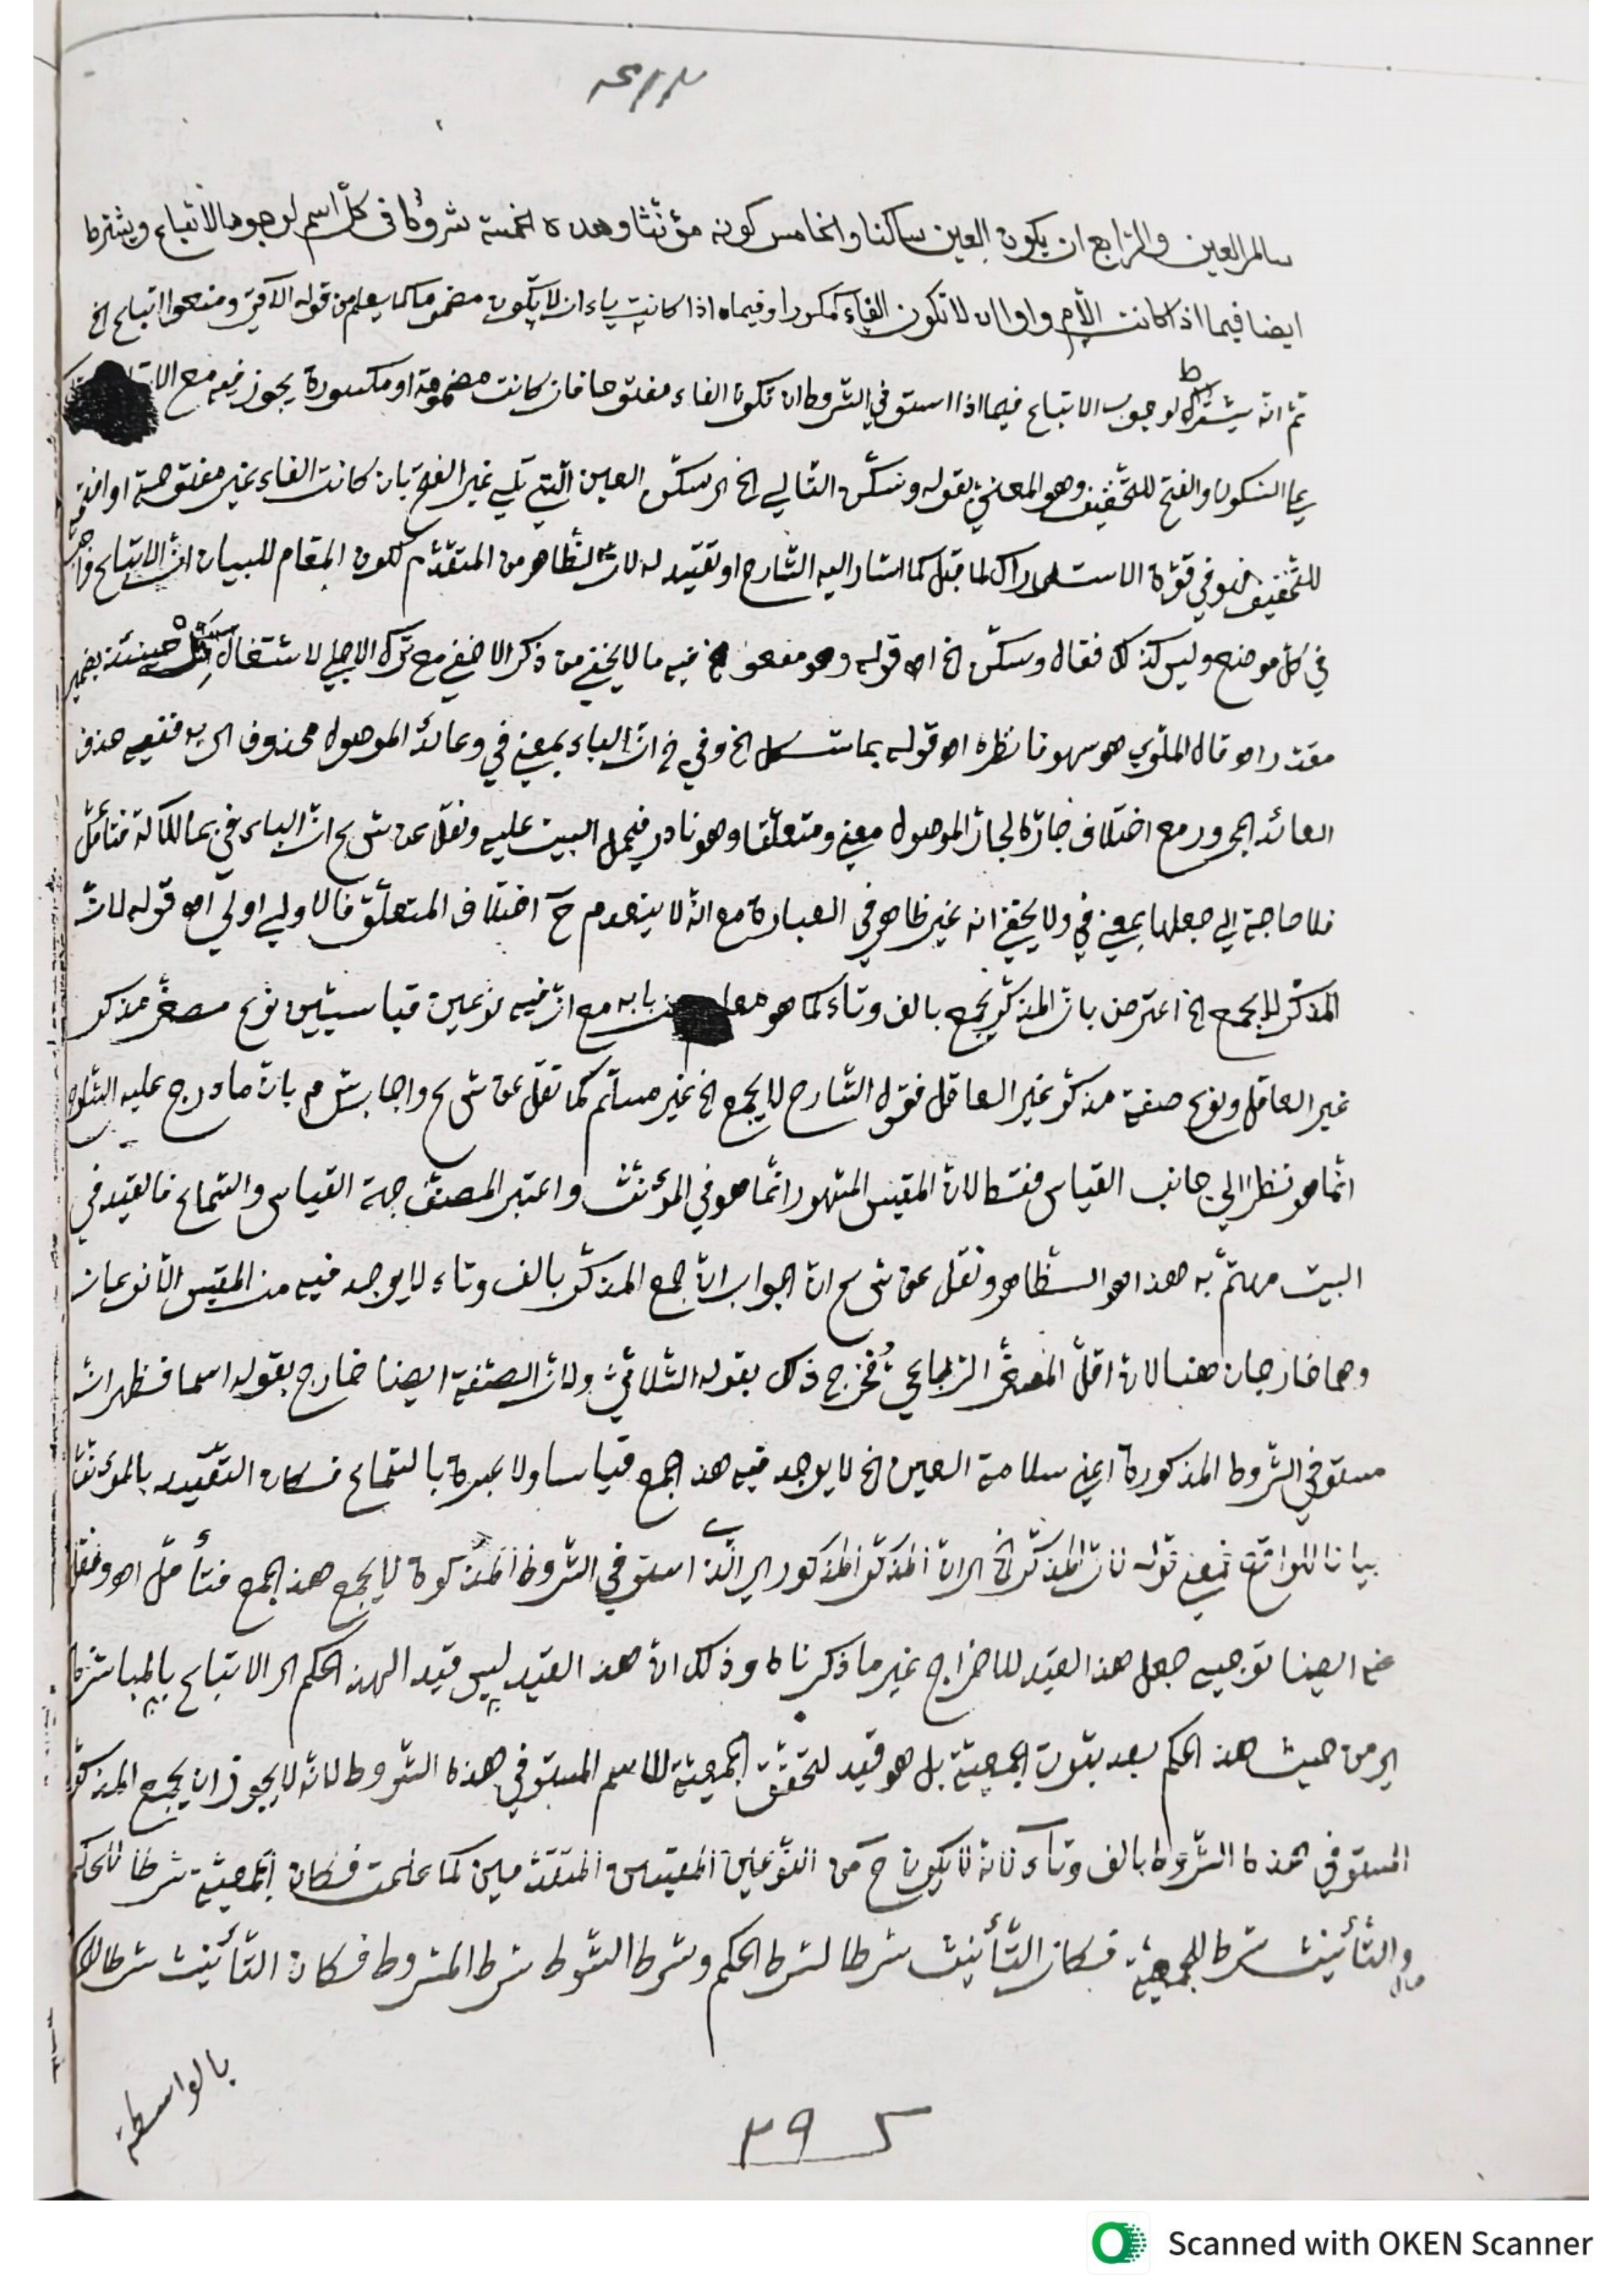 سالم العين والرابع ان يكون العين ساكنا والخامس كونه مؤنثا وهذه الخمسة شروط في كل اسم لوجوب الاتباع ويشترط
ايضا فيما اذا كانت اللام واوا ان لا تكون الفاء مكسورا وفيما اذا كانت ياء ان لا يكون مضموما كما يعلم من قوله الآتي ومنعوا اتباع الخ
ثم انه يشترط لوجوب الاتباع فيما اذا استوفي الشروط ان تكون الفاء مفتوحا فان كانت مضمومة او مكسورة يجوز فيه مع
السكون والفتح للتخفيف وهو المعني بقوله وسكن التالي الخ اي سكن العين التي تلي غير الفتح بان كانت الفاء غير مفتوحة او
للتخفيف فهو في قوة الاستدراك لما قبل كما اشار اليه الشارح او تقييد له لان الظاهر من المتقدم لكون المقام للبيان ان الاتباع واجب
في كل موضع وليس كذلك فقال وسكن الخ اه قوله وهو مفعول الخ فيه ما لا يخفي من ذكر الاخفي مع ترك الاجلي لاشتغال شكل حينئذ بضمير
مقدر اه قال الملوي هو سهو فانظره اه قوله بما شكل الخ وفي خ ان الباء بمعني في وعائد الموصول محذوف اي به ففيه حذف
العائد المجرور مع اختلاف جاره لجار الموصول معني ومتعلقا وهو نادر فيحمل البيت عليه ونقل عن ش ح ان الباء في بما للآلة فتأمل
فلا حاجة الي جعلها بمعني في ولا يخفي انه غير ظاهر في العبارة مع انه لا ينعدم ح اختلاف المتعلق فالاولي اولي اه قوله لان
المذكر لا يجمع الخ اعترض بان المذكر يجمع بالف وتاء كما هو بابه مع ان فيه نوعين قياسيين نوع مصغر مذكر
غير العاقل ونوع صفة مذكر غير العاقل فقول الشارح لا يجمع الخ غير مسلم كما نقل عن ش ح واجاب ش م بان ما درج عليه الشارح
انما هو نظرا الي جانب القياس فقط لان المقيس المشهور انما هو في المؤنث واعتبر المصنف جهة القياس والسماع فالقيد في
البيت مهتم به هذا هو الظاهر ونقل عن ش ح ان الجواب ان جمع المذكر بالف وتاء لا يوجد فيه من المقيس الا نوعان
وهما خارجان هنا لان اقل المصغر الرباعي فخرج ذلك بقوله الثلاثي ولان الصفة ايضا خارج بقوله اسما فظهر ان
مستوفي الشروط المذكورة اعني سلامة العين الخ لا يوجد فيه هذا الجمع قياسا ولا عبرة بالسماع فكان التقييد بالمؤنث
بيانا للواقع فمعني قوله لان المذكر الخ اي ان المذكر المذكور اي الذي استوفي الشروط المذكورة لا يجمع هذا الجمع فتأمل اه ونقل
عنه ايضا توجيه جعل هذا القيد للاخراج غير ما ذكرناه وذلك ان هذا القيد ليس قيدا لهذا الحكم اي الاتباع بالمباشرة
اي من حيث هذا الحكم بعد ثبوت الجمعية بل هو قيد لتحقق الجمعية للاسم المستوفي هذه الشروط لانه لا يجوز ان يجمع المذكر
المستوفي هذه الشروط بالف وتاء لانه لا يكون ح من النوعين المقيسين المتقدمين كما علمت فكان الجمعية شرطا للحكم
والتأنيث شرط للجمعية فكان التأنيث شرطا لشرط الحكم وشرط الشرط شرط المشروط فكان التأنيث شرطا له
بالواسطة
٣٩٥
Scanned with OKEN Scanner